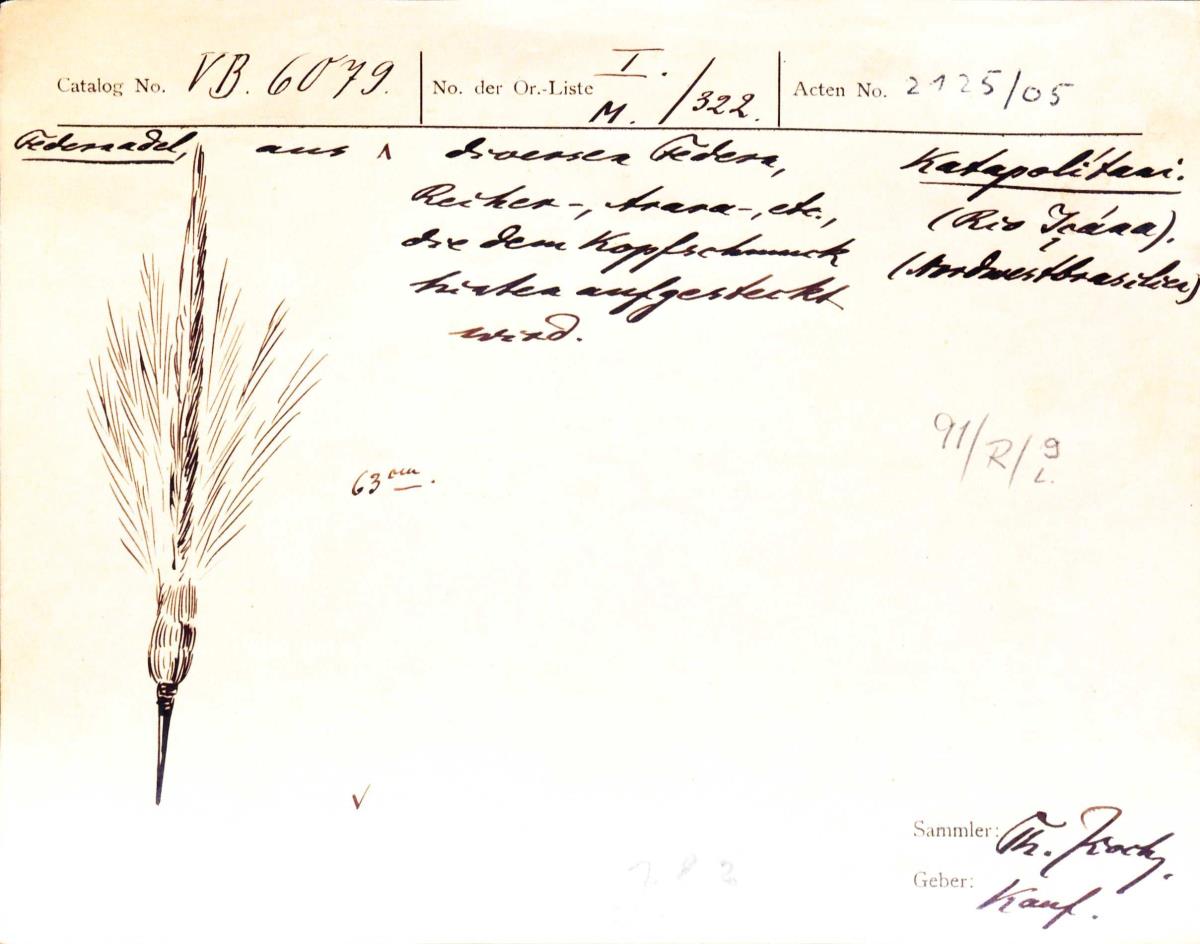 Catalog No. VB. 6079. No. der Or.-Liste I. M. /322. Acten No. 2125/05
Federnadel, aus diversen Federn,
Reiher-, Arara-, etc.,
die dem Kopfschmuck
hinten aufgesteckt
wird.
Katapolítani.
(Rio Içána).
(Nordwestbrasilien)
63 cm.
91/R/9 L.
Sammler: Th. Koch.
Geber: Kauf.